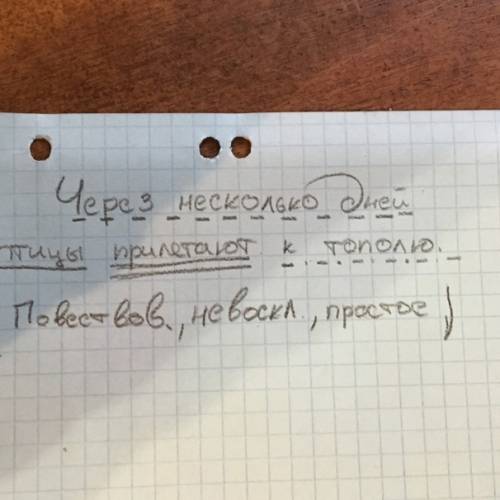 Через несколько дней
птицы прилетают к тополю.
Повествов., невоскл., простое)